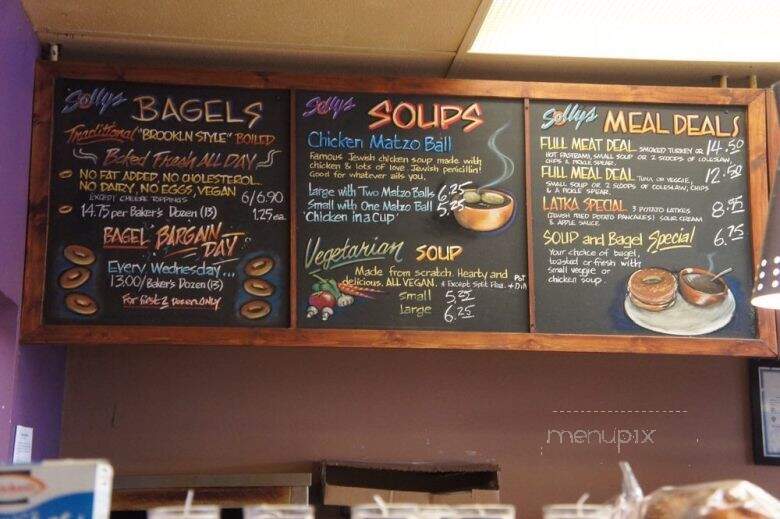 Solly's BAGELS
Traditional "BROOKLN STYLE" BOILED
Baked Fresh ALL DAY
NO FAT ADDED, NO CHOLESTEROL
NO DAIRY, NO EGGS, VEGAN
EXCEPT CHEESE TOPPINGS 6/6.90
14.75 per Baker's Dozen (13) 1.25 ea.
BAGEL BARGAIN DAY
Every Wednesday...
13.00/Baker's Dozen (13)
For first 2 Dozen ONLY
Solly's SOUPS
Chicken Matzo Ball
Famous Jewish chicken soup made with
chicken & lots of love. Jewish penicillin!
Good for whatever ails you.
Large with Two Matzo Balls 6.25
Small with One Matzo Ball 5.25
Chicken in a Cup
Vegetarian SOUP
Made from scratch. Hearty and
delicious. ALL VEGAN. * Except Split Pea.
Small 5.25
Large 6.25
Solly's MEAL DEALS
FULL MEAT DEAL SMOKED TURKEY OR 14.50
HOT PASTRAMI, SMALL SOUP OR 2 SCOOPS OF COLESLAW,
CHIPS & PICKLE SPEAR.
FULL MEAL DEAL TUNA, OR VEGGIE, 12.50
SMALL SOUP OR 2 SCOOPS OF COLESLAW, CHIPS
& A PICKLE SPEAR.
LATKA SPECIAL 3 POTATO LATKES 8.95
(JEWISH FRIED POTATO PANCAKES) SOUR CREAM
& APPLE SAUCE
SOUP and Bagel Special 6.75
Your choice of bagel,
toasted or fresh with
small veggie or
chicken soup.
menupix